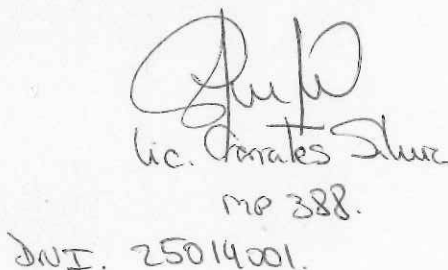 Lic. Corrales Silvia
MP 388.
DNI. 25014001.